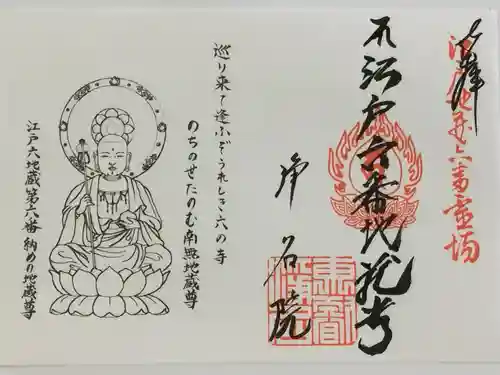 奉拝
江戸地蔵六番霊場
江戸六番地蔵尊
浄名院
東叡
浄名院
巡り来て逢ふぞうれしき六の寺
のちのせたのむ南無地蔵尊
江戸六地蔵第六番納めの地蔵尊